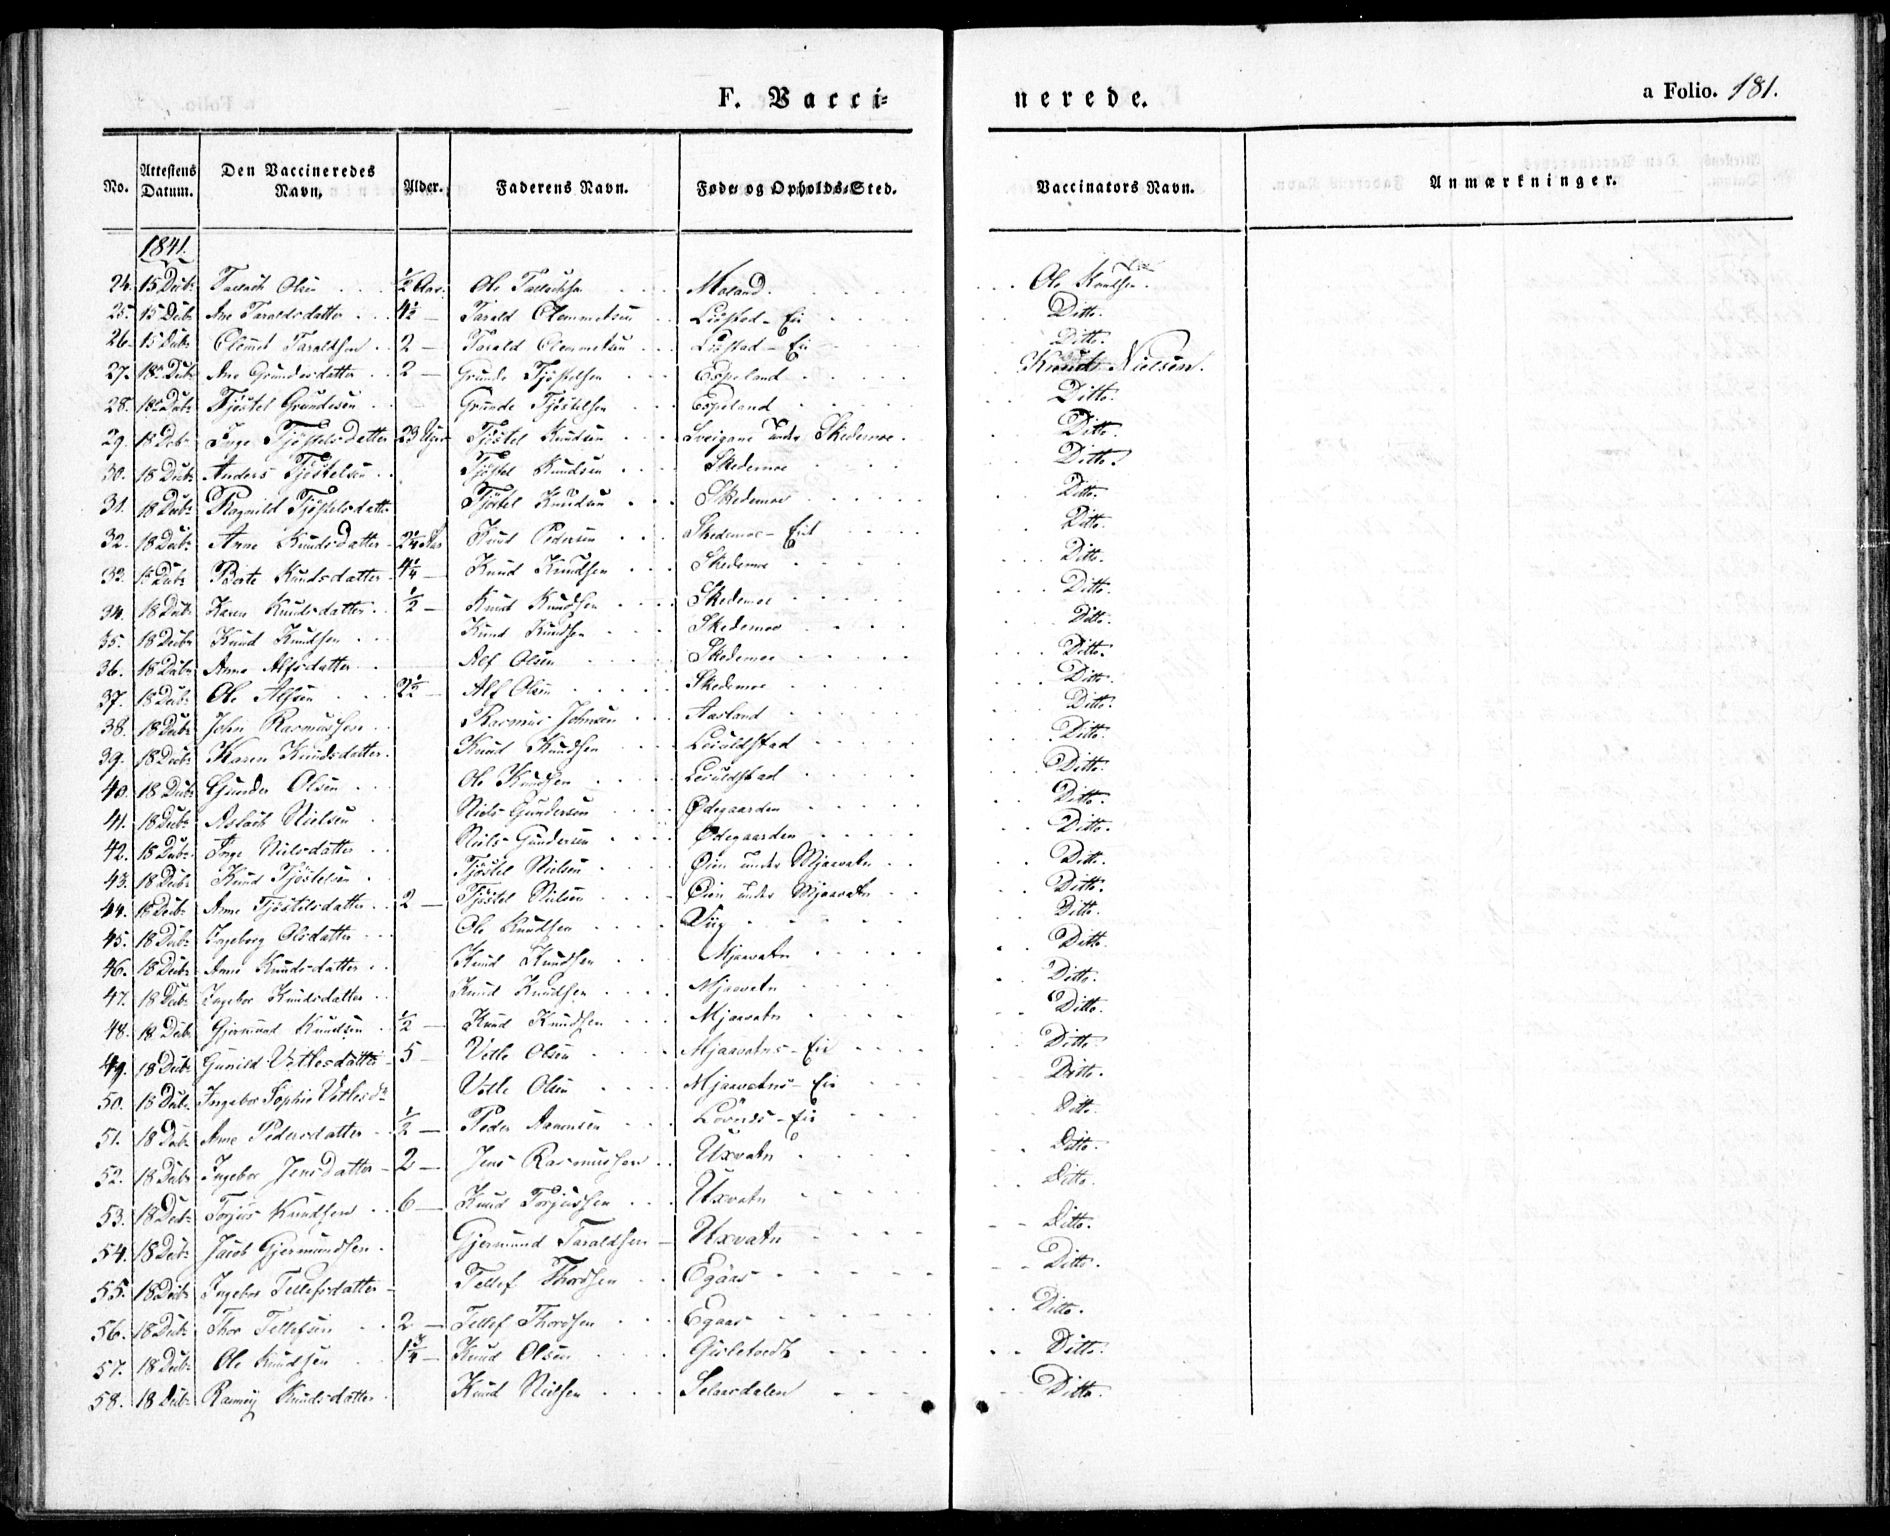 F. Vacci-
nerede.
a Folio. 181.
No. Attestens Datum. Den Vaccineredes Navn. Alder. Faderens Navn. Føde- og Opholds-Sted. Vaccinators Navn. Anmærkninger.
1841.
24. 15 Decbr Tallack Olsen ½ Aar. Ole Tallacksen Moland. Ole Knudsen.
25. 15 Decbr Ane Taraldsdatter 4½ — Tarald Clemmetsen Ditto.
26. 15 Decbr Clemet Taraldsen 2 — Tarald Clemmetsen Ditto.
27. 18 Decbr Ane Grundesdatter 2 — Grunde Tjøstelsen Espeland Knud Nielsen.
28. 18 Decbr Tjøstel Grundesen Grunde Tjøstelsen Espeland Ditto.
29. 18 Decbr Inge Tjøstelsdatter 23 Uger Tjøstel Knudsen Sveigane under Skedemoe. Ditto.
30. 18 Decbr Anders Tjøstelsen Tjøstel Knudsen Skedemoe Ditto.
31. 18 Decbr Ragnild Tjøstelsdatter Tjøstel Knudsen Skedemoe Ditto.
32. 18 Decbr Anne Knudsdatter 2¼ Aar Knud Pedersen Skedemoe-Eiet Ditto.
33. 18 Decbr Berte Knudsdatter 4¼ — Knud Knudsen Skedemoe Ditto.
34. 18 Decbr Karen Knudsdatter ½ — Knud Knudsen Skedemoe Ditto.
35. 18 Decbr Knud Knudsen Knud Knudsen Skedemoe Ditto.
36. 18 Decbr Anne Alfsdatter Alf Olsen Skedemoe Ditto.
37. 18 Decbr Ole Alfsen 2½ — Alf Olsen Skedemoe Ditto.
38. 18 Decbr John Rasmussen Rasmus Johnsen Aasland Ditto.
39. 18 Decbr Karen Knudsdatter Knud Knudsen Leiuldstad Ditto.
40. 18 Decbr Gunder Olsen Ole Knudsen Leiuldstad Ditto.
41. 18 Decbr Aslack Nielsen Niels Gundersen Ødegaarden Ditto.
42. 18 Decbr Inge Nielsdatter Niels Gundersen Ødegaarden Ditto.
43. 18 Decbr Knud Tjøstelsen Tjøstel Nielsen Øien under Mjaavatn Ditto.
44. 18 Decbr Anne Tjøstelsdatter 2 — Tjøstel Nielsen Øien under Mjaavatn Ditto.
45. 18 Decbr Ingeborg Olsdatter Ole Knudsen Viig Ditto.
46. 18 Decbr Anne Knudsdatter Knud Knudsen Mjaavatn Ditto.
47. 18 Decbr Ingebor Knudsdatter Knud Knudsen Mjaavatn Ditto.
48. 18 Decbr Gjermund Knudsen ½ — Knud Knudsen Mjaavatn Ditto.
49. 18 Decbr Gunild Vetlesdatter 5 — Vetle Olsen Mjaavatns-Eie Ditto.
50. 18 Decbr Ingebor Sophie Vetlesdr Vetle Olsen Mjaavatns-Eie Ditto.
51. 18 Decbr Anne Pedersdatter ½ — Peder Aanonsen Ditto.
52. 18 Decbr Ingebor Jensdatter 2 — Jens Rasmussen Uxvatn Ditto.
53. 18 Decbr Torjus Knudsen 6 — Knud Torjussen Uxvatn Ditto.
54. 18 Decbr Jacob Gjermundsen Gjermund Taraldsen Uxvatn Ditto.
55. 18 Decbr Ingebor Tellefsdatter Tellef Thordsen Egaas Ditto.
56. 18 Decbr Thor Tellefsen 2 — Tellef Thordsen Egaas Ditto.
57. 18 Decbr Ole Knudsen 1¾ — Knud Olsen Ditto.
58. 18 Decbr Knudsdatter Knud Nielsen Selaasdalen Ditto.